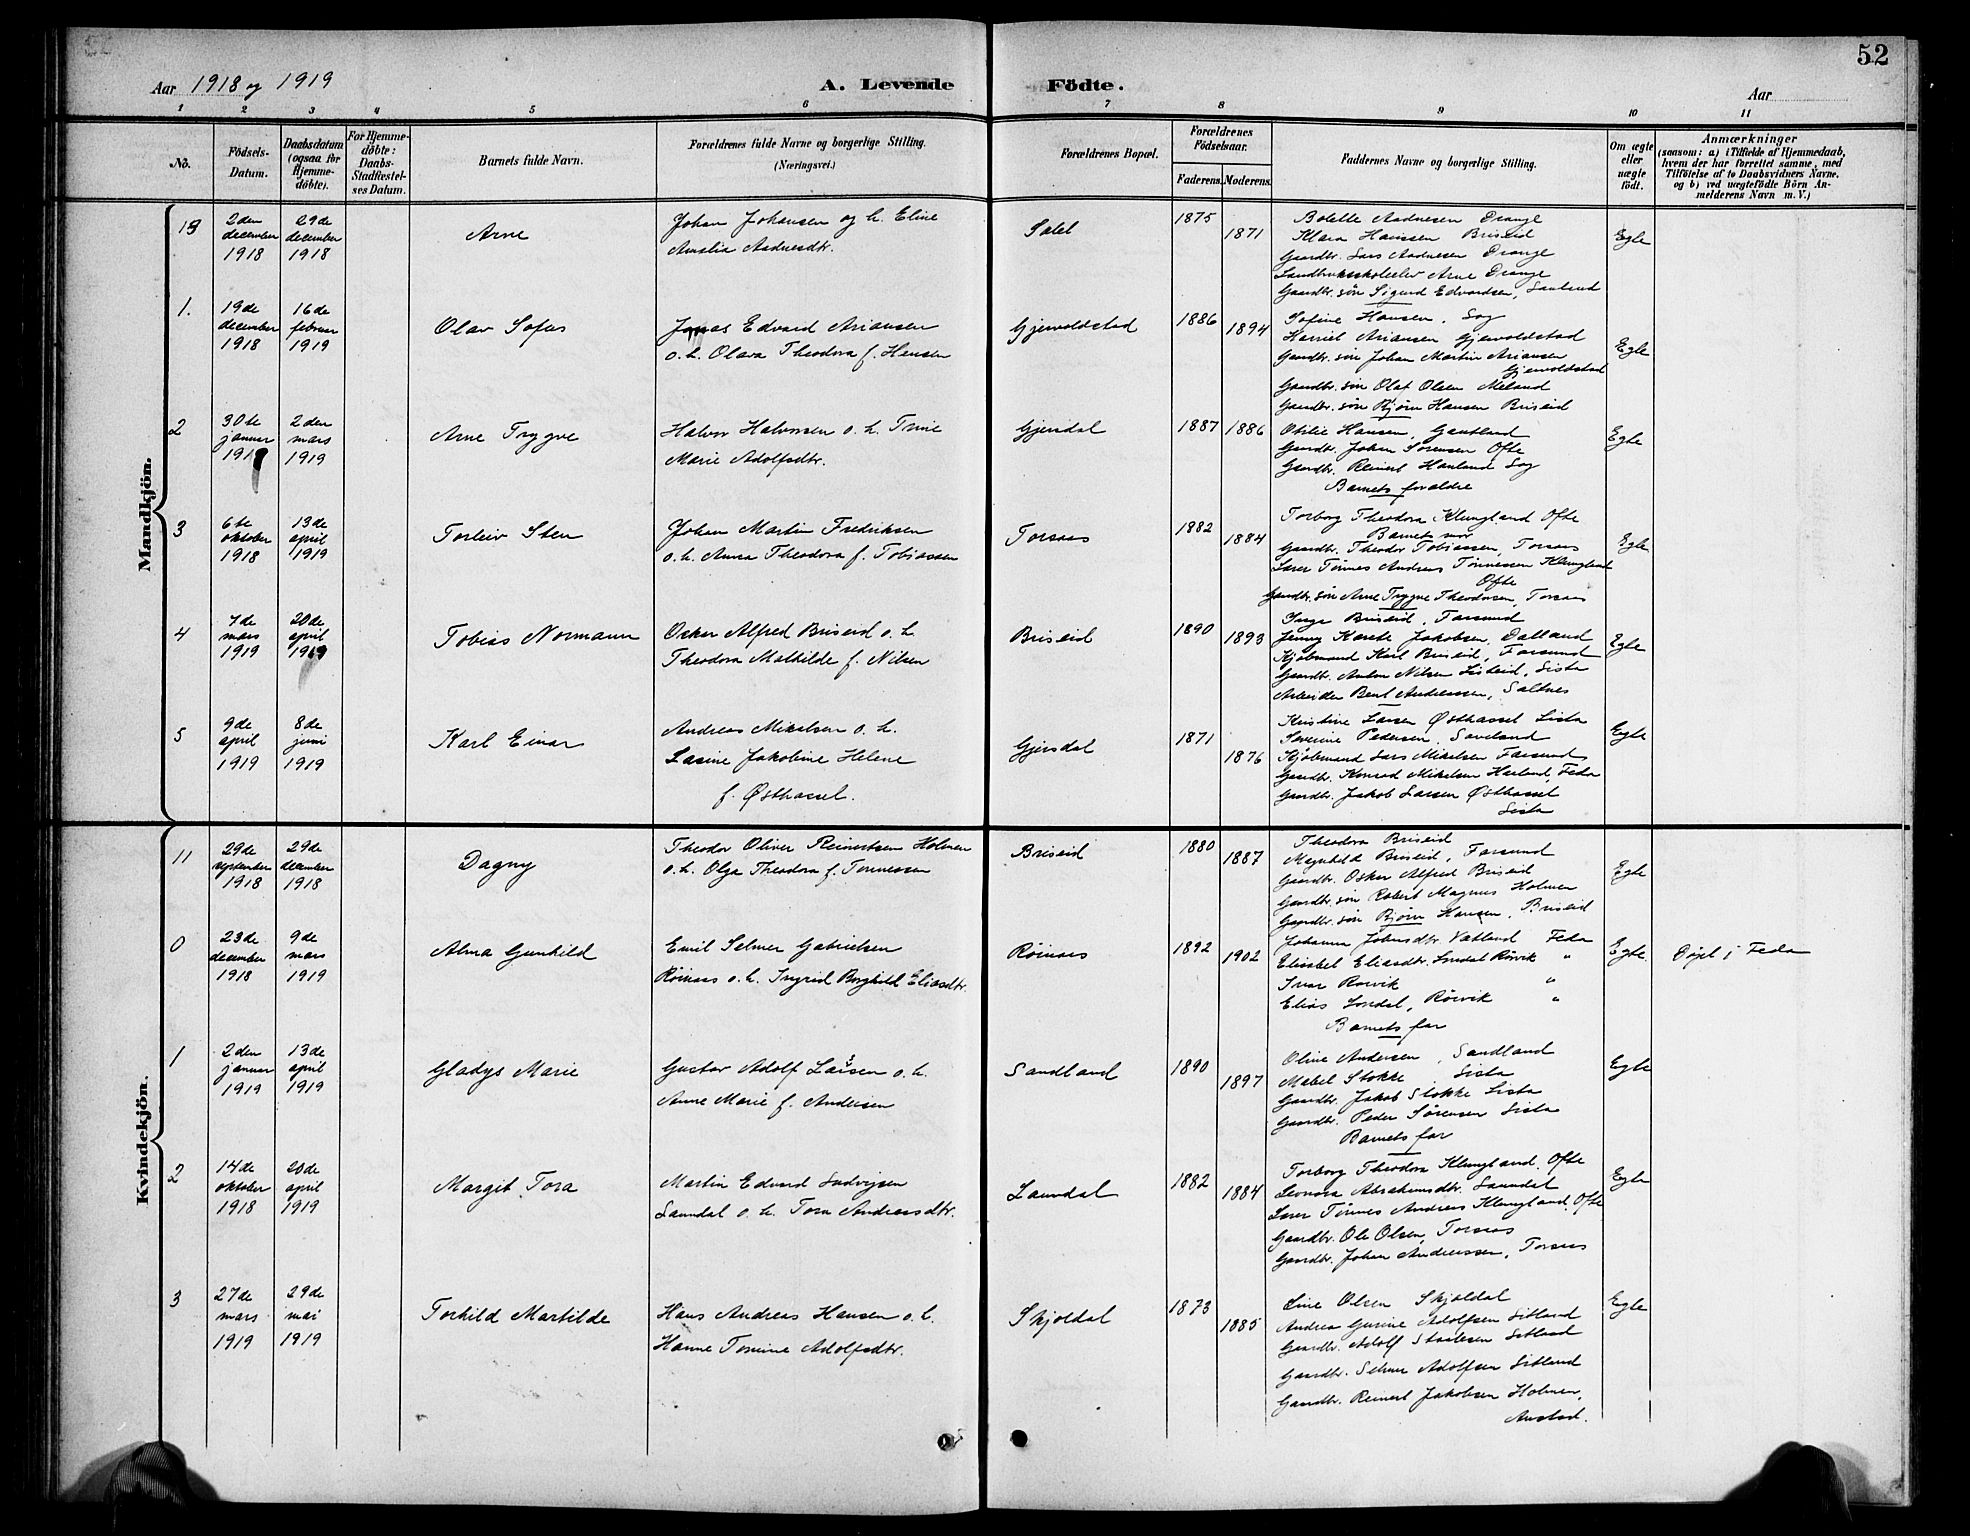 52
Aar 1918 og 1919
A. Levende Födte.
Aar
1 2 3 4 5 6 7 8 9 10 11
No.
Födsels-Datum.
Daabsdatum (ogsaa for Hjemmedöbte).
For Hjemmedöbte: Daabs-Stadfæstelses Datum.
Barnets fulde Navn.
Forældrenes fulde Navne og borgerlige Stilling.
(Næringsvei.)
Forældrenes Bopæl.
Forældrenes Födselsaar.
Faderens. Moderens.
Faddernes Navne og borgerlige Stilling.
Om ægte eller uægte födt.
Anmærkninger
(saasom: a) i Tilfælde af Hjemmedaab, hvem der har forrettet samme, med Tilföielse af to Daabsvidners Navne, og b) ved uægtefödte Börn Anmelderens Navn m. V.)
Mandkjön.
19 2den december 1918 29de december 1918 Arne
Johan Johansen og h. Eline
Amalia Aadnesdtr.
1875 1871
Bolette Aadnesen Drange
Klara Hanssen Briseid
Gaardbr. Lars Aadnesen Drange
Landbruksskoleelev Arne Drange
Gaardbr. søn Sigurd Edvardsen,
Egte
1. 19de december 1918 16de februar 1919 Olav Sofus
Jonas Edvard Ariansen
o.h. Olava Theodora f. Hansen
Gjervoldstad 1886 1894
Sofine Hansen, Log
Harriet Ariansen Gjervoldstad
Gaardbr. søn Johan Martin Ariansen
Gjervoldstad
Gaardbr. søn Olaf Olsen Meland
Gaardbr. søn Bjørn Hansen Briseid
Egte
2 30te januar 1919 2den mars 1919 Arne Trygve
Halvor Halvorsen o.h. Trine
Marie Adolfsdtr.
Gjersdal 1887 1886
Otilie Hansen, Gautland
Gaardbr. Johan Sørensen Ofte
Gaardbr. Reinert Hauland Log
Barnets foraldre
Egte
3 6te oktober 1918 13de april 1919 Torleiv Sten
Johan Martin Fredriksen
o.h. Anna Theodora f. Tobiassen
Torsaas 1882 1884
Torborg Theodora Klungland Ofte
Barnets mor
Gaardbr. Theodor Tobiassen, Torsaas
Lærer Tønnes Andreas Tønnessen Klungland
Ofte
Gaardbr. søn Arne Trygve Theodorsen, Torsaas
Egte
4 7de mars 1919 20de april 1919 Tobias Normann
Osker Alfred Briseid o.h.
Theodora Mathilde f. Nilsen
Briseid 1890 1893
Inga Briseid, Farsund
Jenny Karete Jakobsen, Dalland
Kjøbmand Karl Briseid, Farsund
Gaardbr. Anton Nilsen Listeid, Lista
Arbeider Bent Andreassen, Saltnes
Egte
5 9de april 1919 8de juni 1919 Karl Einar
Andreas Mikalsen o.h.
Lasine Jakobine Helene
f. Østhassel.
Gjersdal 1871 1876
Kristine Larsen Østhassel Lista
Severine Pedersen,
Kjøbmand Lars Mikalsen Farsund
Gaardbr. Konrad Mikalsen Haaland, Feda
Gaardbr. Jakob Larsen Østhassel
Lista
Egte
Kvindekjön.
11 29de september 1918 29de december 1918 Dagny
Theodor Oliver Reinertsen Holmen
o.h. Olga Theodora f. Tønnessen
Briseid 1880 1887
Theodora Briseid
Magnhild Briseid, Farsund
Gaardbr. Osker Alfred Briseid
Gaardbr. søn Robert Magnus Holmen
Gaardbr. søn Bjørn Hansen, Briseid
Egte
0 23de december 1918 9de mars 1919 Alma Gunhild
Emil Selmer Gabrielsen
Røinaas o.h. Ingrid Borghild Eliasdtr.
Røinaas 1892 1902
Johanna Johnsdtr. Vatland Feda
Elisabet Eliasdtr. Londal Rørvik "
Ivar Rørvik "
Elias Londal, Rørvik "
Barnets far
Egte.
Døpt i Feda
1 2den januar 1919 13de april 1919 Gladys Marie
Gustav Adolf Larsen o.h.
Anne Marie f. Andersen
Sandland 1890 1897
Oline Andersen, Sandland
Mabel Stokke Lista
Gaardbr. Jakob Stokke Lista
Gaardbr. Peder Sørensen Lista
Barnets far
Egte
2 14de oktober 1918 20de april 1919 Margit Tora
Martin Edvard Ludvigsen
Laundal o.h. Tora Andreasdtr.
Laundal 1882 1884
Torborg Theodora Klungland, Ofte
Leonora Abrahamsdtr. Laundal
Lærer Tønnes Andreas Klungland, Ofte
Gaardbr. Ole Olsen, Torsaas
Gaardbr. Johan Andreassen, Torsaas
Egte
3 27de mars 1919 29de mai 1919 Torhild Martilde
Hans Andreas Hansen o.h.
Hanne Tomine Adolfsdtr.
Skjoldal 1873 1885
Line Olsen Skjoldal
Andrea Gurine Adolfsen Sitland
Gaardbr. Adolf Staalesen Sitland
Gaardbr. Selmer Adolfsen Sitland
Gaardbr. Reinert Jakobsen Holmen,
Austad.
Egte